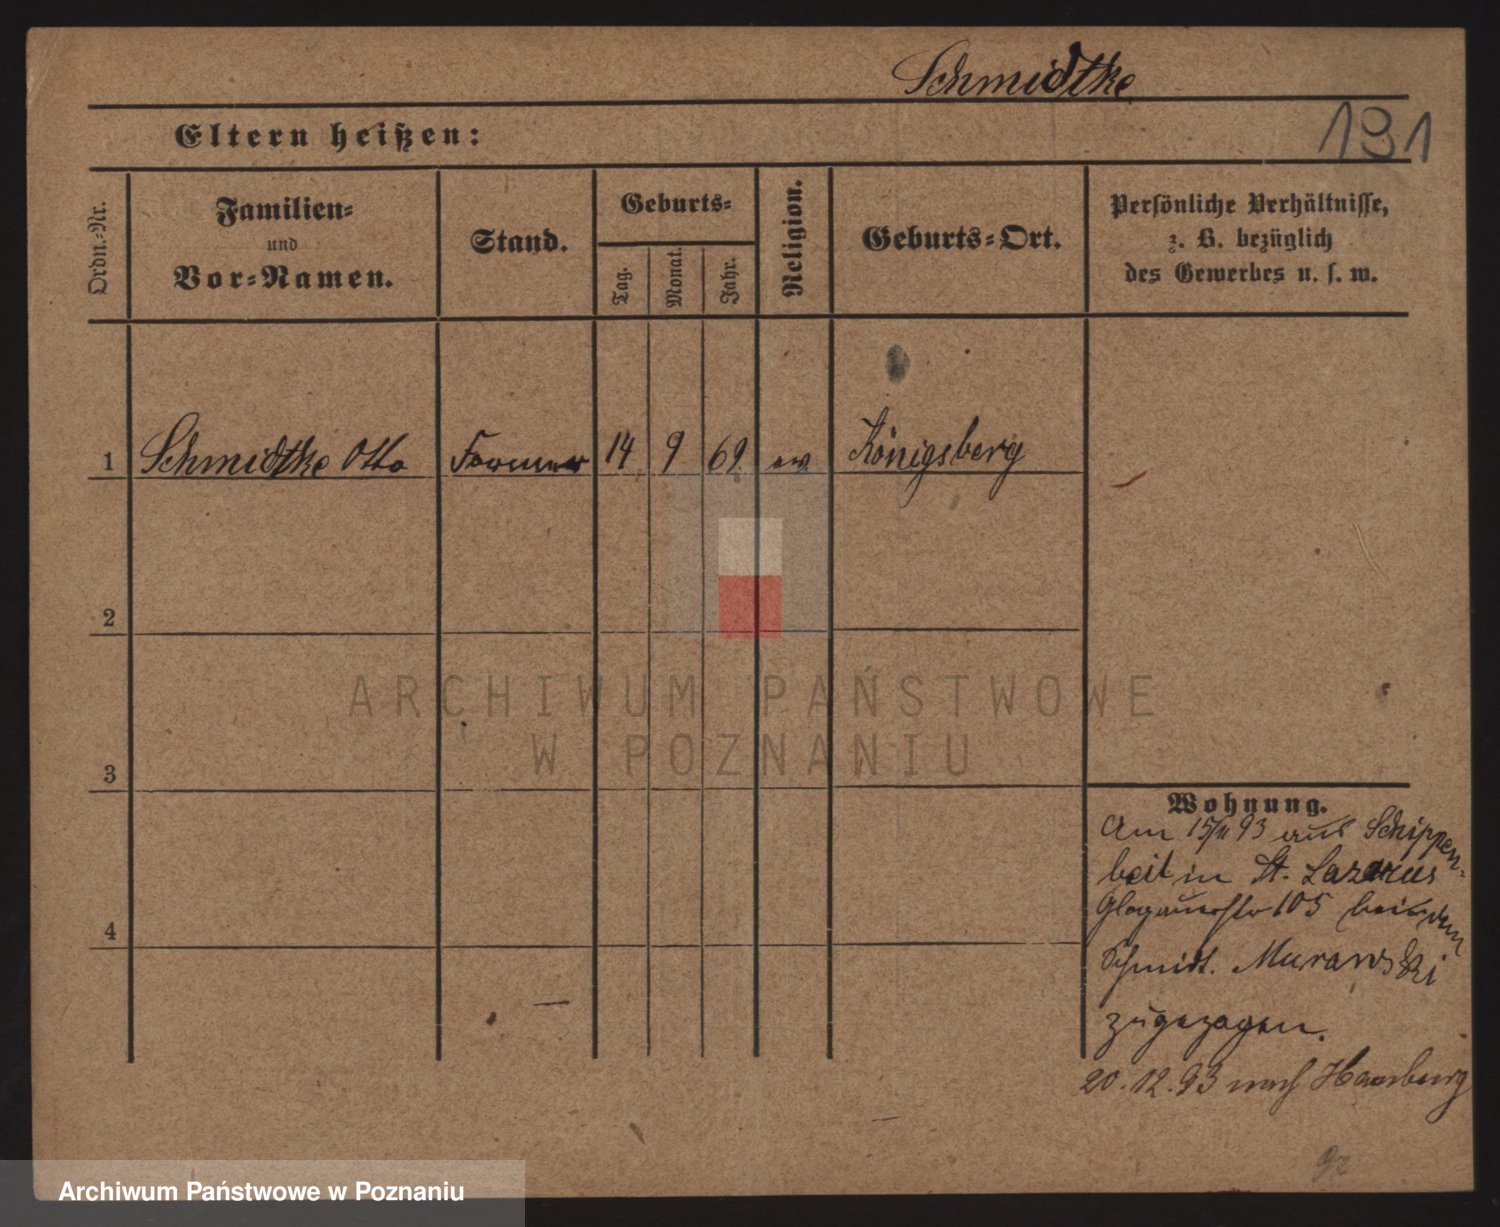 Schmidtke
191
Eltern heißen:
Ordn.-Nr.
Familien-
und
Vor-Namen.
Stand.
Geburts-
Tag.
Monat.
Jahr.
Religion.
Geburts-Ort.
Persönliche Verhältnisse,
z. B. bezüglich
des Gewerbes u. s. w.
1 Schmidtke Otto Former 14 9 69 ev Königsberg
2
3
4
Wohnung.
Am 15/11 93 aus Schippen-
beil in St. Lazarus
Glogauerstr 105 bei dem
Schmidt. Murawski
zugezogen.
20.12.93 nach Hamburg
ARCHIWUM PAŃSTWOWE
W POZNANIU
Archiwum Państwowe w Poznaniu